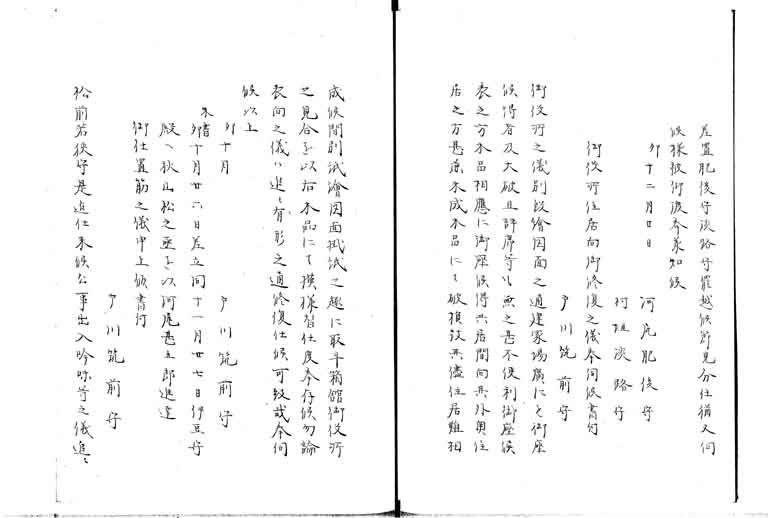 差置肥後守淡路守罷越候節見分仕猶又伺
候様被仰渡奉承知候
卯十二月廿日　河尾肥後守
村垣淡路守
御役所住居向御修復之儀奉伺候書付
戸川筑前守
御役所之儀別紙絵図面之通建家場廣にも御座
候得者及大破且評席等も無之甚不便利御座候
表之方木品相應に御座候得共居間向其外奥住
居之方甚麁木成木品にて破損致其儘住居難相
成候間別紙繪図面掛紙之趣に取平箱館御役所
之見合を以右木品にて模様替仕度奉存候勿論
表向之儀ハ追々有形之通修復仕候可致哉奉伺
候以上
卯十月　戸川筑前守
朱書
卯十月廿六日差立同十一月廿七日伊豆守
殿へ秋山松之丞を以河尾甚五郎進達
御仕置筋之儀申上候書付
戸川筑前守
松前若狭守是迄仕来候公事出入吟味等之儀追々